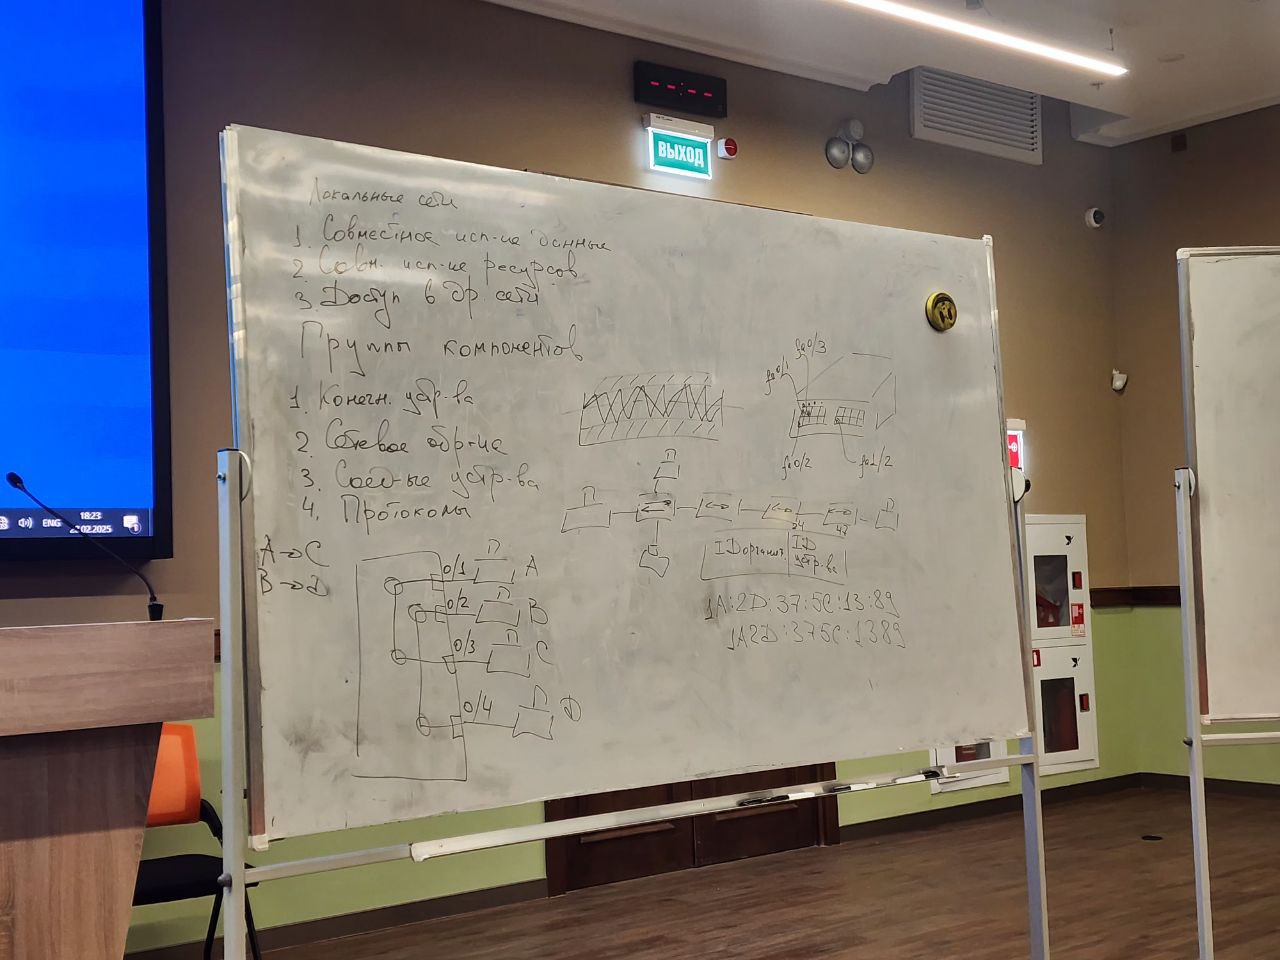 ВЫХОД
Локальные сети
1. Совместное исп-ие данные
2. Совм. исп-ие ресурсов
3. Доступ в др. сети
Группы компонентов
1. Конечн. устр-ва
2. Сетевое обр-ие
3. Соед-ые устр-ва
4. Протоколы
A→C
B→D
0/1 A
0/2 B
0/3 C
0/4 D
fa0/3
fa0/1
fa0/2
fa1/2
24
47
ID организ. ID устр-ва
1A:2D:37:5C:13:89
1A2D:375C:1389
ENG
18:23
.02.2025